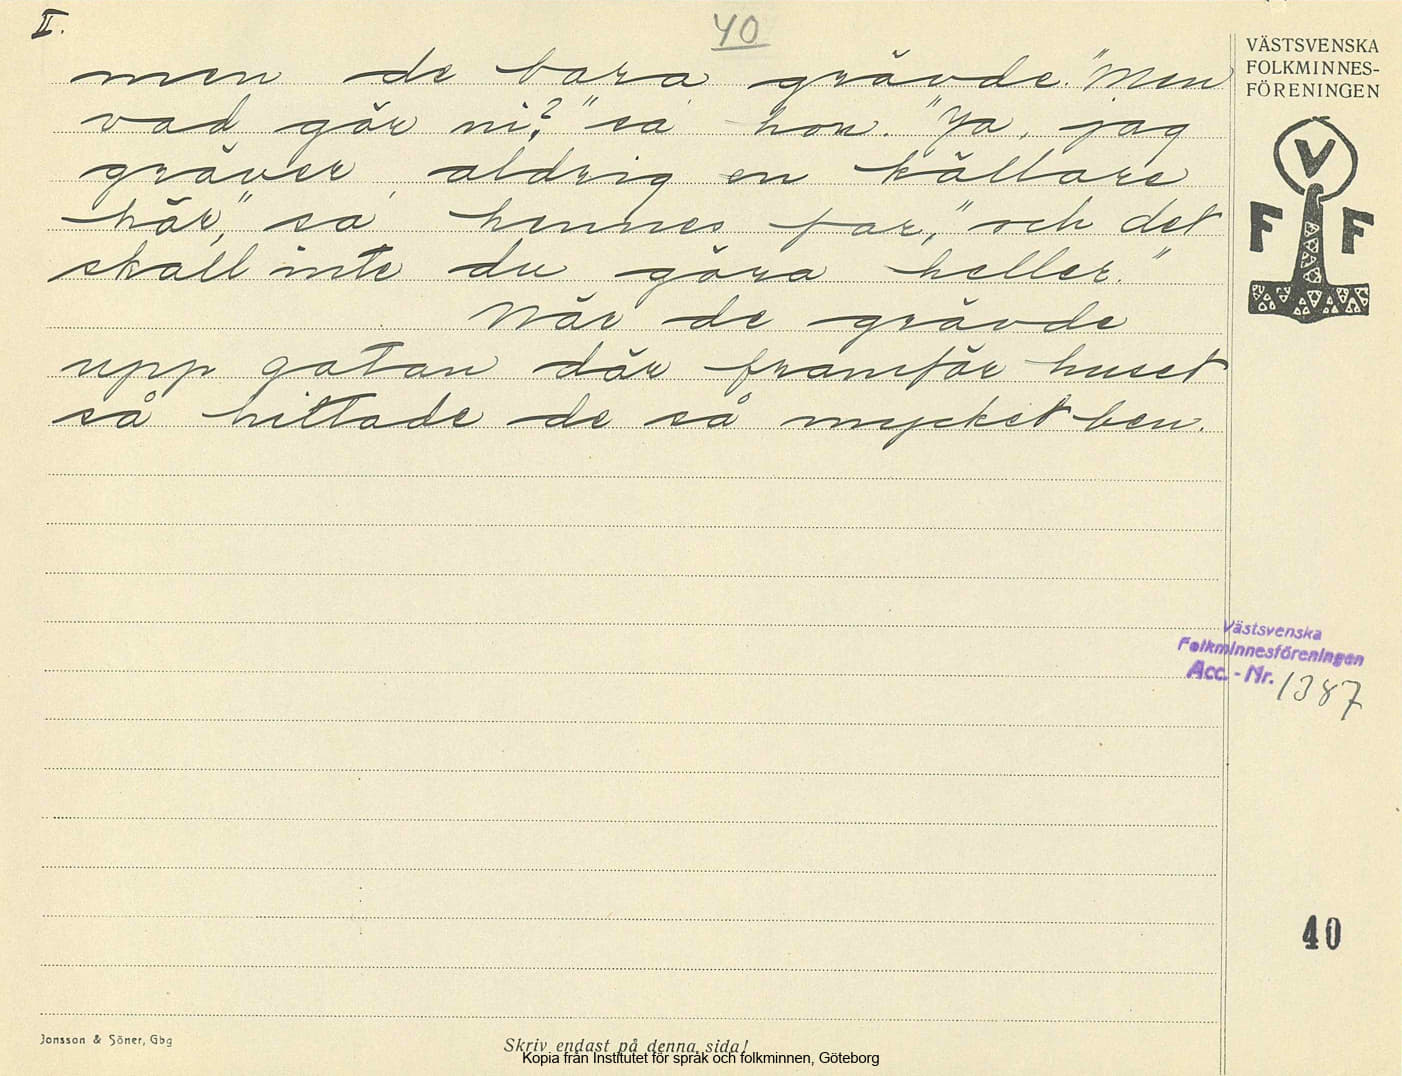 II.
40
men de bara grävde. "Men
vad gör ni?" sa hon. "Ja, jag
gräver aldrig en källare
här," sa hennes far, "och det
skall inte du göra heller."
När de grävde
upp gatan där framför huset
så hittade de så mycket ben.
VÄSTSVENSKA
FOLKMINNES-
FÖRENINGEN
V
F F
Västsvenska
Folkminnesföreningen
Acc. - Nr. 1387
40
Jonsson & Söner, Gbg
Skriv endast på denna sida!
Kopia från Institutet för språk och folkminnen, Göteborg